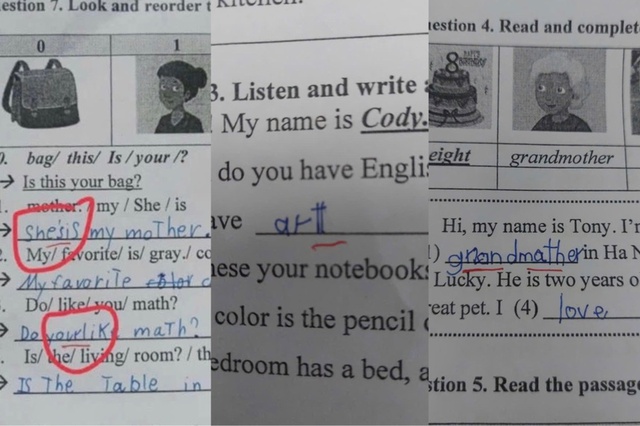 estion 7. Look and reorder t
0 1
0. bag/ this/ Is / your /?
→ Is this your bag?
. mother. / my / She / is
→ She'sis my mother.
. My/ favorite/ is/ gray./ co
→ My favorite color c
. Do/ like/ you/ math?
→ Do yourlik math?
. Is/ the/ living/ room? / th
→ IS The Table in
3. Listen and write
My name is Cody.
do you have Englis
ave artt
hese your notebooks
color is the pencil
edroom has a bed, a
estion 4. Read and complet
8
HAPPY BIRTHDAY
eight grandmother
Hi, my name is Tony. I'm
) grandmather in Ha N
Lucky. He is two years o
reat pet. I (4) love
stion 5. Read the passage